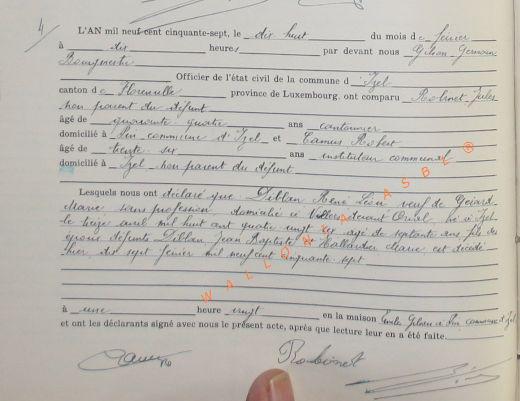 4
L'AN mil neuf cent cinquante-sept, le dix huit du mois de février
à dix heures, par devant nous Germain
Officier de l'état civil de la commune d'Izel
canton de Florenville province de Luxembourg, ont comparu Robinet Jules
non parent du défunt
âgé de quarante quatre ans cantonnier
domicilié à Pin commune d'Izel et Camus Robert
âgé de trente six ans instituteur communal
domicilié à Izel non parent du défunt
Lesquels nous ont déclaré que Dillan René Léon veuf de
Marie sans profession domicilié à Villers devant Orval, né à Izel
le treize avril mil huit cent quatre vingt six âgé de septante ans fils des
époux défunts Jean Baptiste et Marie est décédé
hier dix sept février mil neuf cent cinquante sept
à une heure vingt en la maison Emile à Pin commune d'Izel
et ont les déclarants signé avec nous le présent acte, après que lecture leur en a été faite.
Robinet
WALLONIA ASBL ®